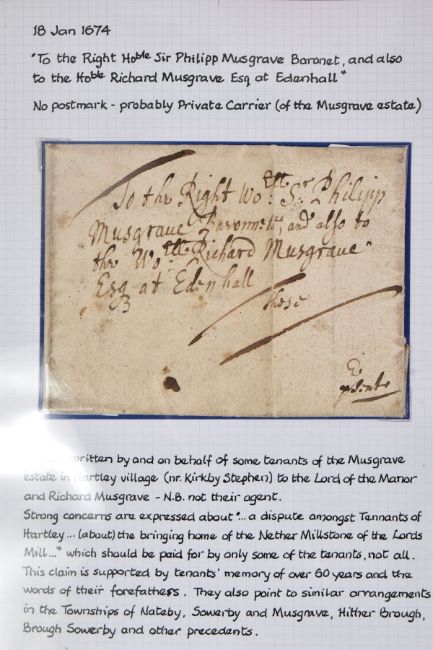 18 Jan 1674
"To the Right Hoble Sir Philipp Musgrave Baronet, and also
to the Hoble Richard Musgrave Esq at Edenhall"
No postmark - probably Private Carrier (of the Musgrave estate)
To the Right Wo:ll Sr Philipp
Musgrave Baronett, and also to
the Wo:ll Richard Musgrave
Esq at Edenhall
These
written by and on behalf of some tenants of the Musgrave
estate in Hartley village (nr. Kirkby Stephen) to the Lord of the Manor
and Richard Musgrave - N.B. not their agent.
Strong concerns are expressed about "... a dispute amongst Tennants of
Hartley... (about) the bringing home of the Nether Millstone of the Lords
Mill..." which should be paid for by only some of the tenants, not all.
This claim is supported by tenants' memory of over 60 years and the
words of their forefathers. They also point to similar arrangements
in the Townships of Nateby, Sowerby and Musgrave, Hither Brough,
Brough Sowerby and other precedents.